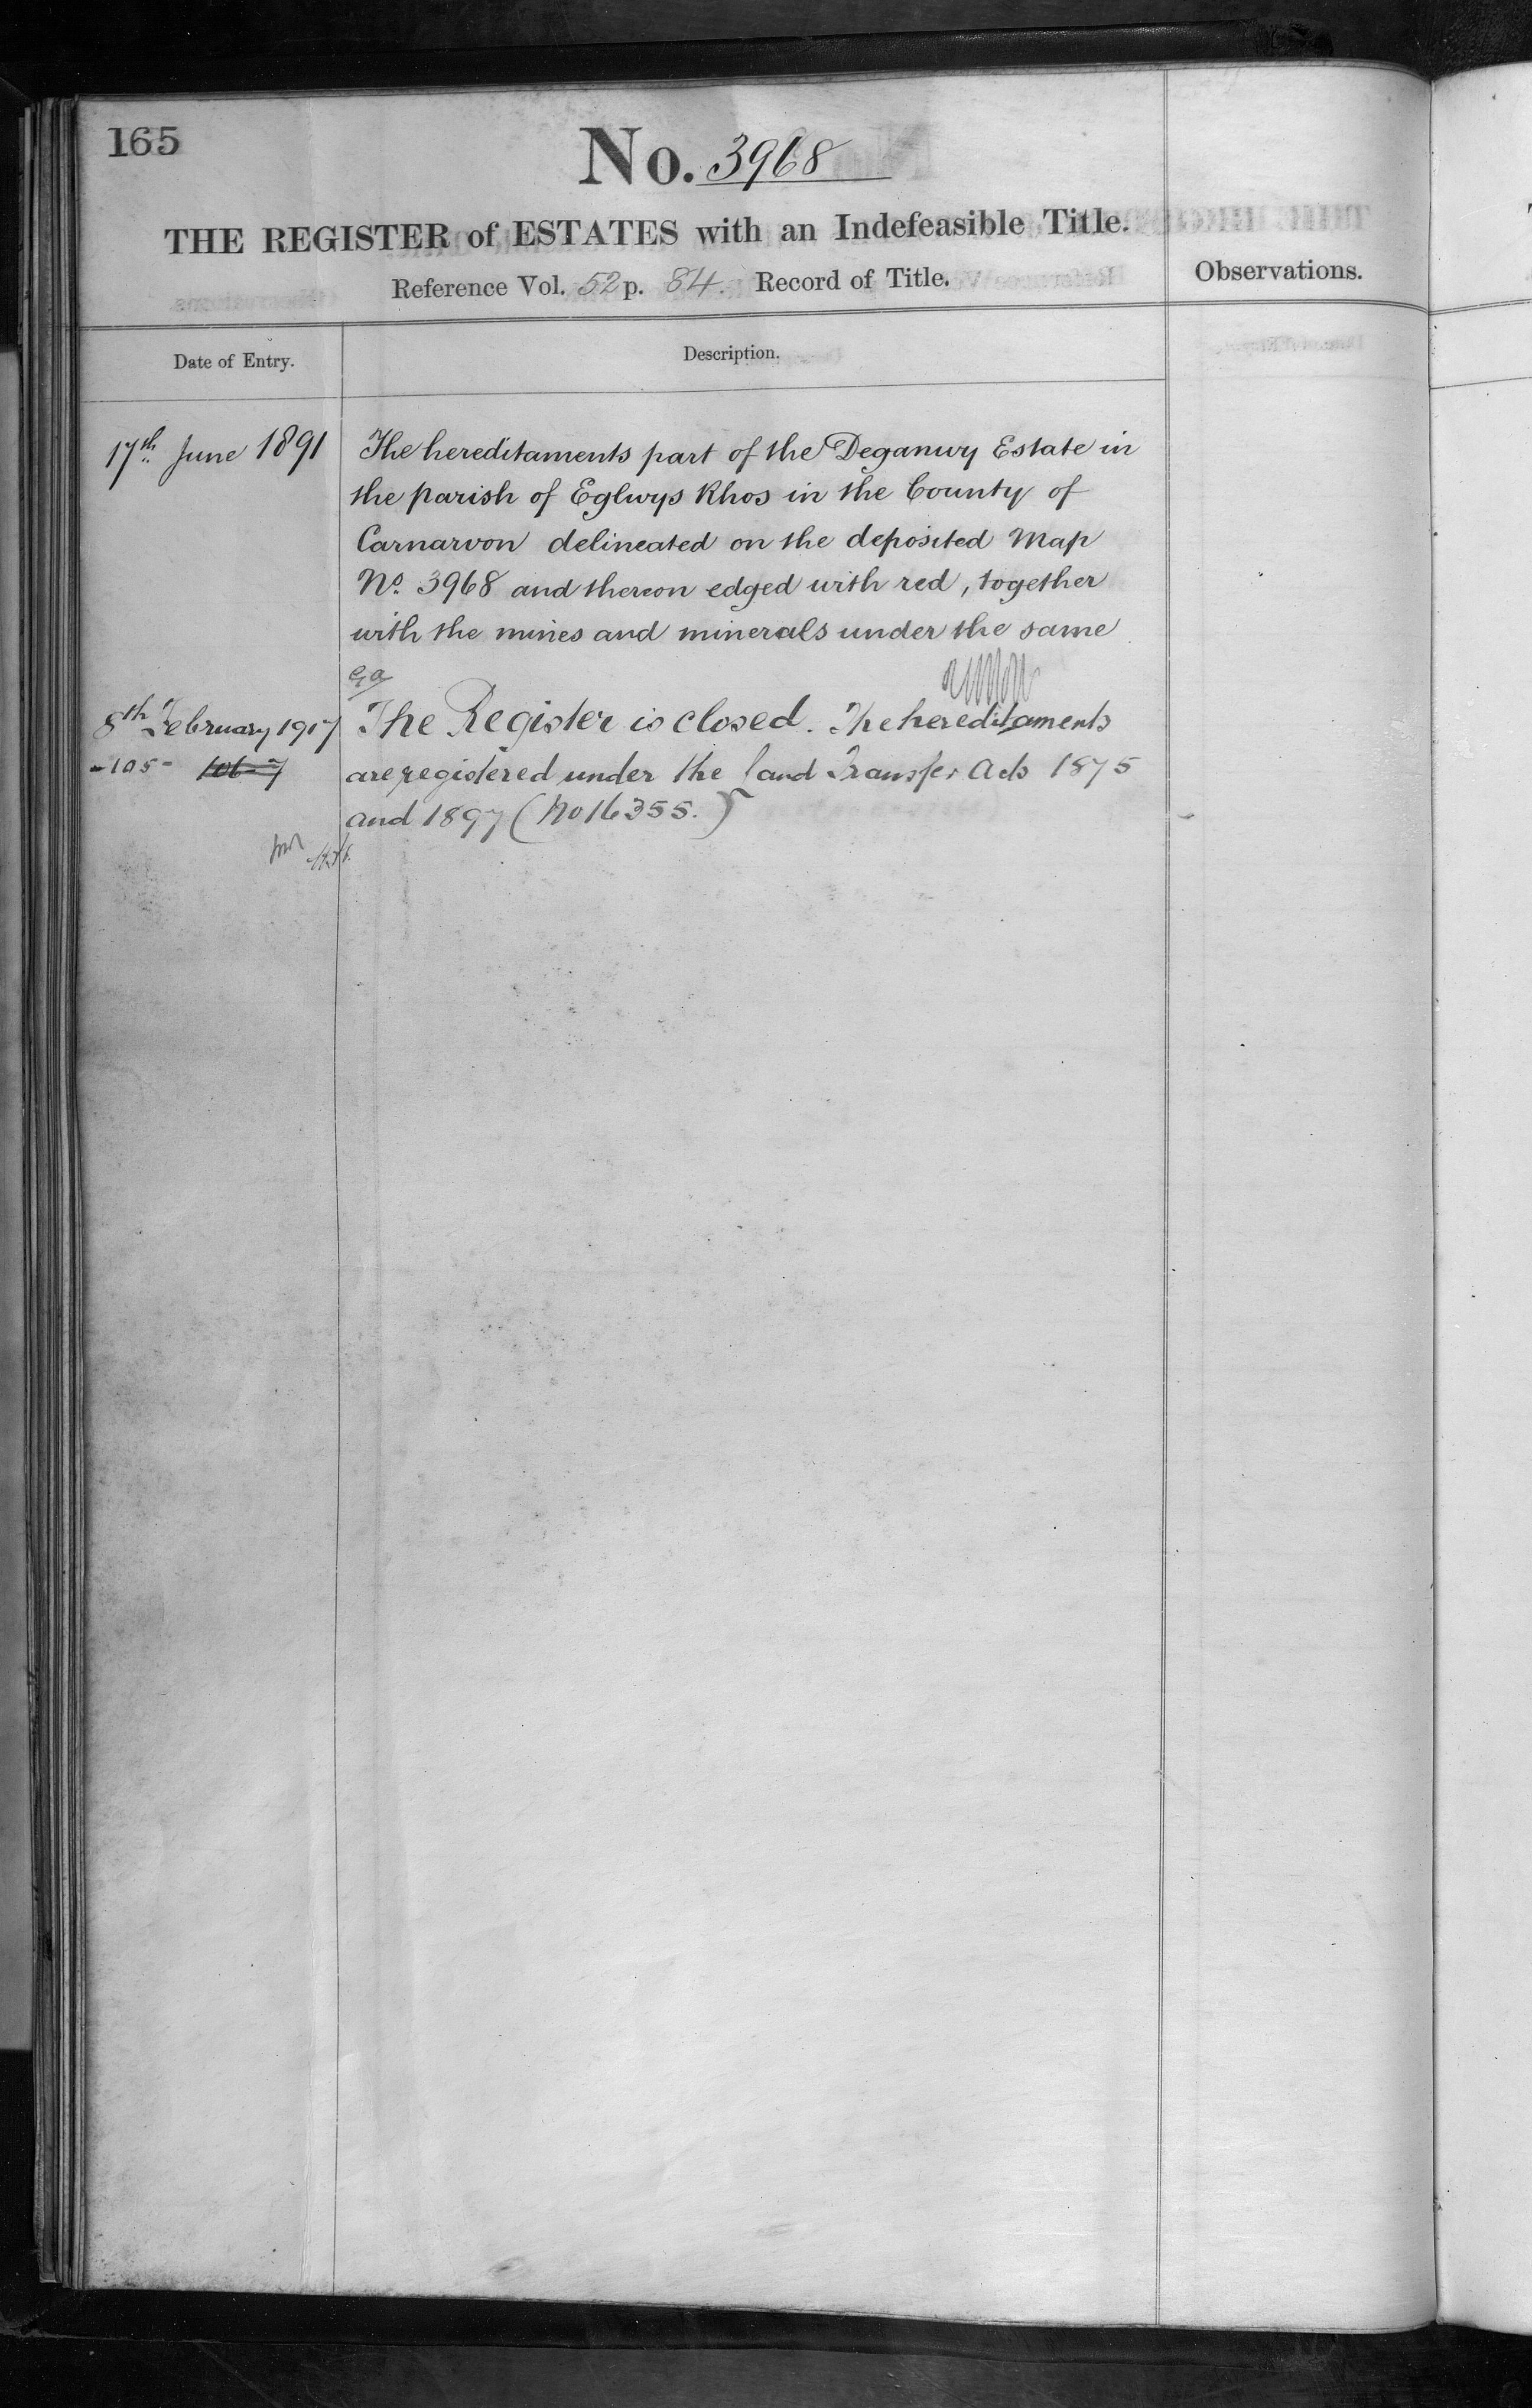 165
No. 3968
THE REGISTER of ESTATES with an Indefeasible Title.
Reference Vol. 52 p. 84. Record of Title.
Observations.
Date of Entry.
Description.
17th June 1891
The hereditaments part of the Deganwy Estate in
the parish of Eglwys Rhos in the County of
Carnarvon delineated on the deposited Map
No. 3968 and thereon edged with red, together
with the mines and minerals under the same
8th February 1917
-105-
The Register is closed. The hereditaments
are registered under the Land Transfer Acts 1875
and 1897 (No 16355.)